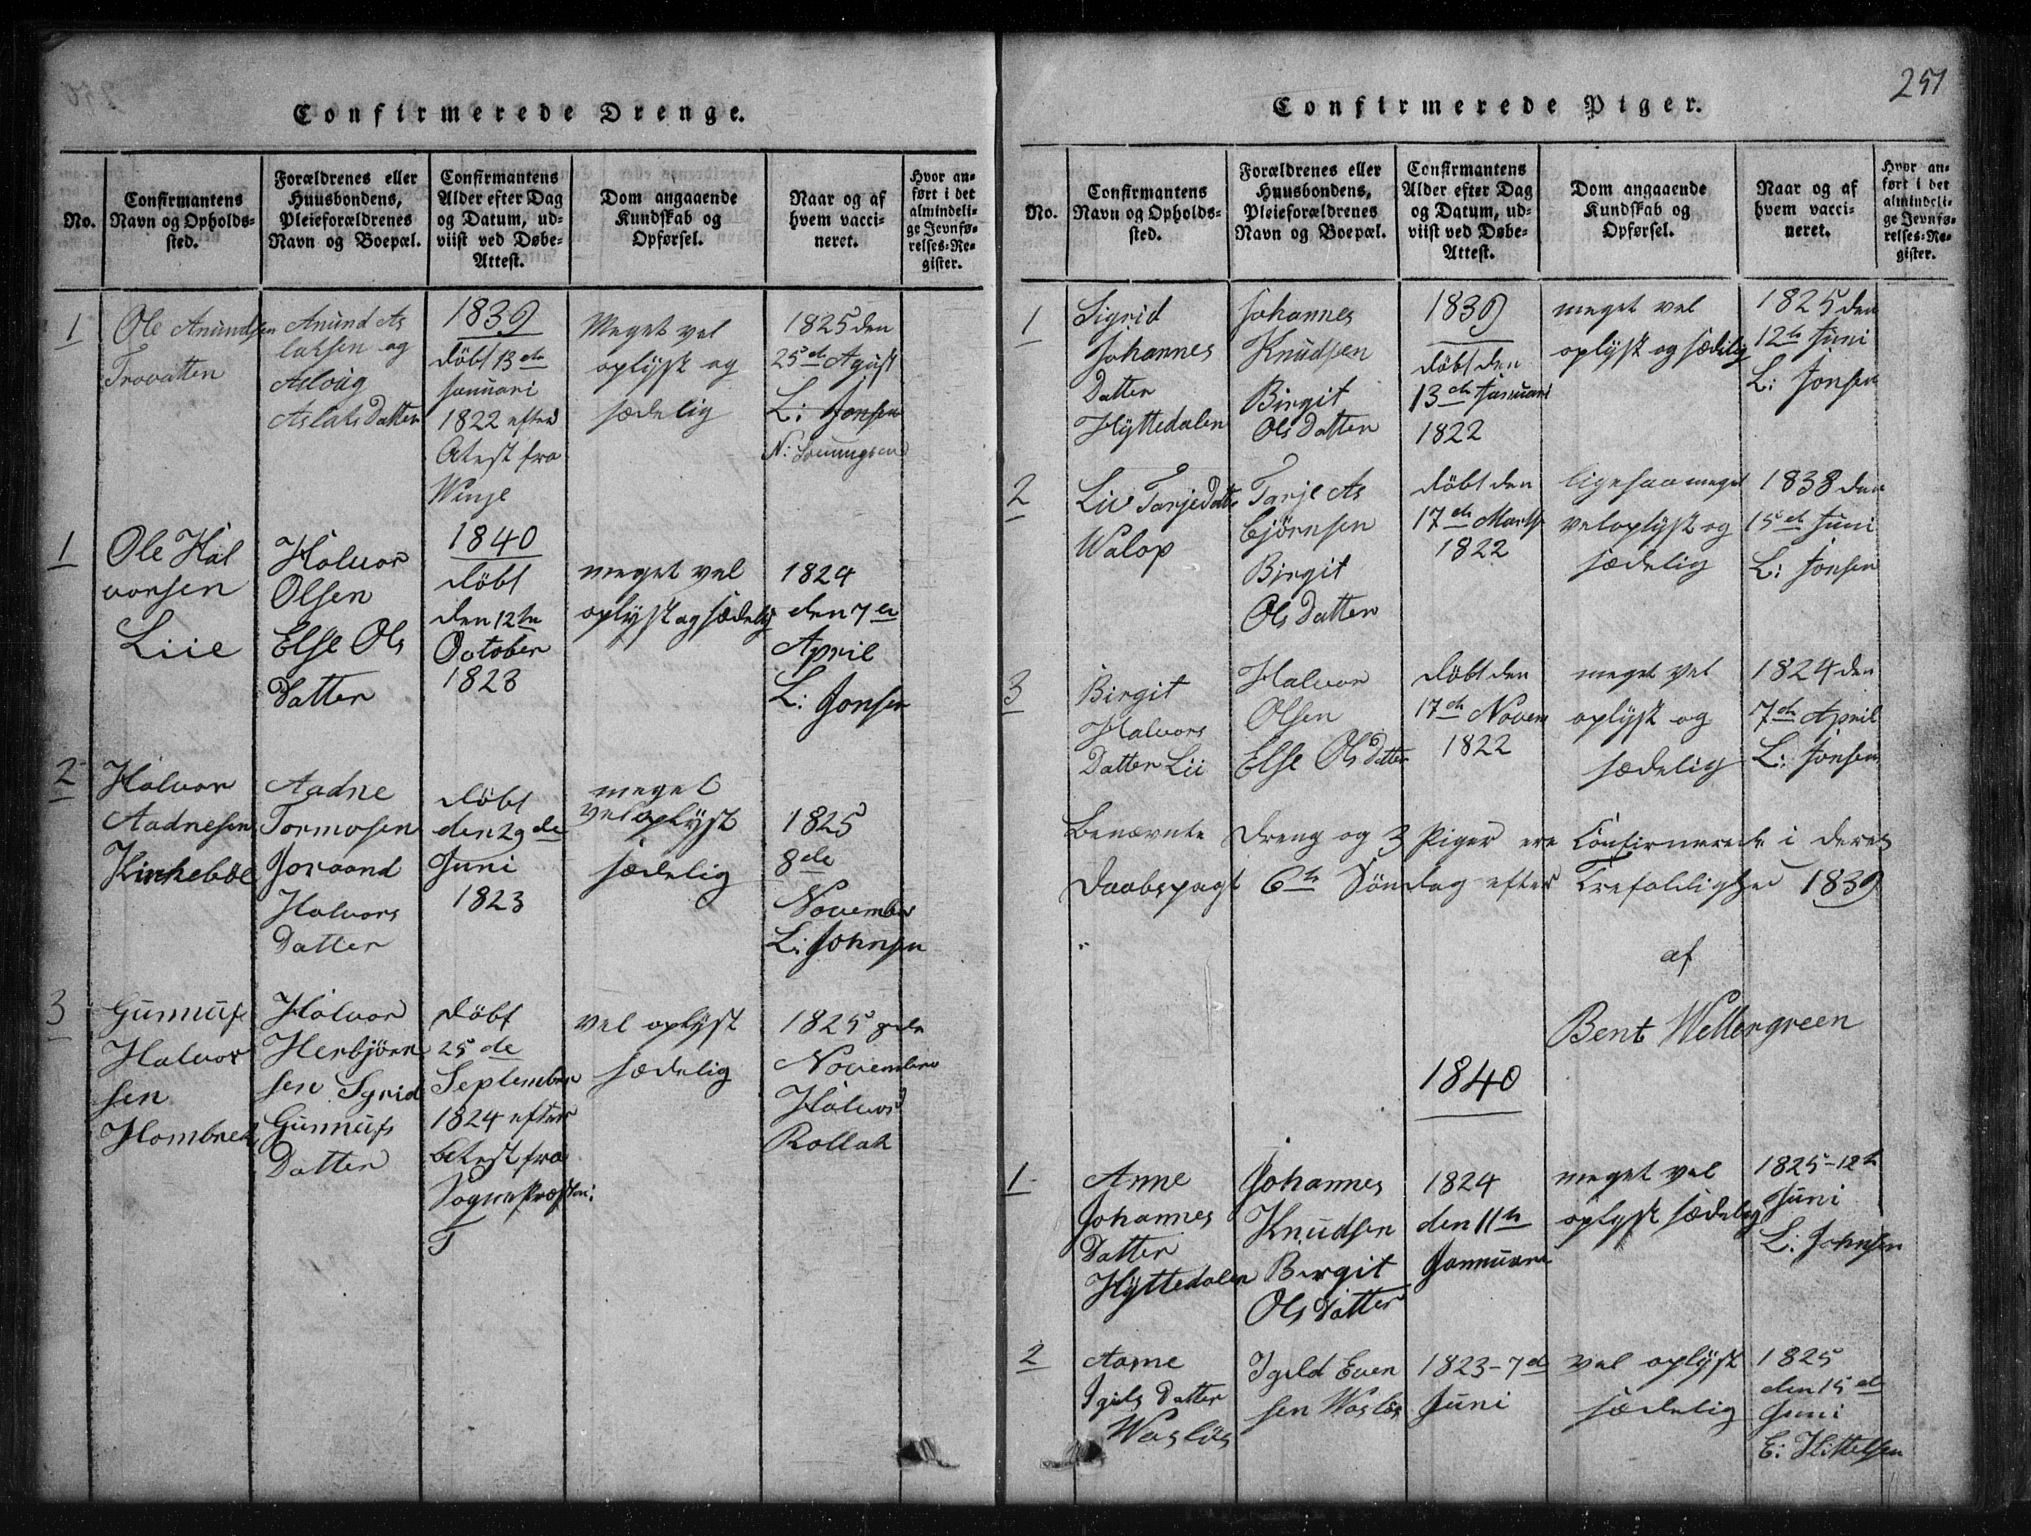 Confirmerede Drenge.
No.
Confirmantens
Navn og Opholds-
sted.
Forældrenes eller
Huusbondens,
Pleieforældrenes
Navn og Boepæl.
Confirmantens
Alder efter Dag
og Datum, ud-
viist ved Døbe-
Attest.
Dom angaaende
Kundskab og
Opførsel.
Naar og af
hvem vacci-
neret.
Hvor an-
ført i det
almindeli-
ge Jevnfø-
relses-Re-
gister.
1
Ole Anundsen
Trovatten
Anund As
laksen og
Asloug
Aslaks Datter
1839
döbt 13de
Januari
1822 efter
Atest fra
Winje
Meget vel
oplyst og
sædelig
1825 den
25de Agust
L: Jonsen
1
Ole Hal
vorsen
Liie
Halvor
Olsen
Else Ols
Datter
1840
döbt
den 12te
October
1823
meget vel
oplyst og sædelig
1824
den 7de
April
L: Jonsen
2
Halvor
Aadnesen
Kirkeböe
Aadne
Tormosen
Joraand
Halvors
Datter
döbt
den 29de
Juni
1823
meget
vel oplyst
sædelig
1825
8de
November
L: Johnsen
3
Gunnuf
Halvor
sen
Hombrek
Halvor
Herbjørn
sen Syrid
Gunnufs
Datter
döbt
25de
September
1824 efter
Atest fra
Sognepræsten i
T
vel oplyst
sædelig
1825 8de
November
Halvor
Rollak
251
Confirmerede Piger.
No.
Confirmantens
Navn og Opholds-
sted.
Forældrenes eller
Huusbondens,
Pleieforældrenes
Navn og Boepæl.
Confirmantens
Alder efter Dag
og Datum, ud-
viist ved Døbe-
Attest.
Dom angaaende
Kundskab og
Opførsel.
Naar og af
hvem vacci-
neret.
Hvor an-
ført i det
almindeli-
ge Jevnfø-
relses-Re-
gister.
1
Sigrid
Johannes
Datter
Hyttedalen
Johannes
Knudsen
Birgit
Ols Datter
1839
döbt den
13de Januari
1822
meget vel
oplyst og sædelig
1825 den
12te Juni
L: Jonsen
2
Liv Tarjedatter
Walop
Tarje As
bjørnsen
Birgit
Ols Datter
döbt den
17de Marts
1822
ligesaa meget
vel oplyst og
sædelig
1838 den
15de Juni
L: Jonsen
3
Birgit
Halvors
Datter Lii
Halvor
Olsen
Else Olsdatter
döbt den
17de Novem
1822
meget vel
oplyst og
sædelig
1824 den
7de April
L: Jonsen
Benævnte Dreng og 3 Piger ere Confirmerede i deres
Daabspagt 6te Söndag efter Trefoldighed 1839
af
Bent Wettergreen
1840
1
Anne
Johannes
Datter
Hyttedalen
Johannes
Knudsen
Birgit
Ols Datter
1824
den 11te
Jannuari
meget vel
oplyst sædelig
1825-12te
Juni
L: Johnsen
2
Aasne
Igils Datter
Waslös
Igild Even
sen Waslös
1823-7de
Juni
vel oplyst
sædelig
1825
den 15de
Juni
E: Kittelsen